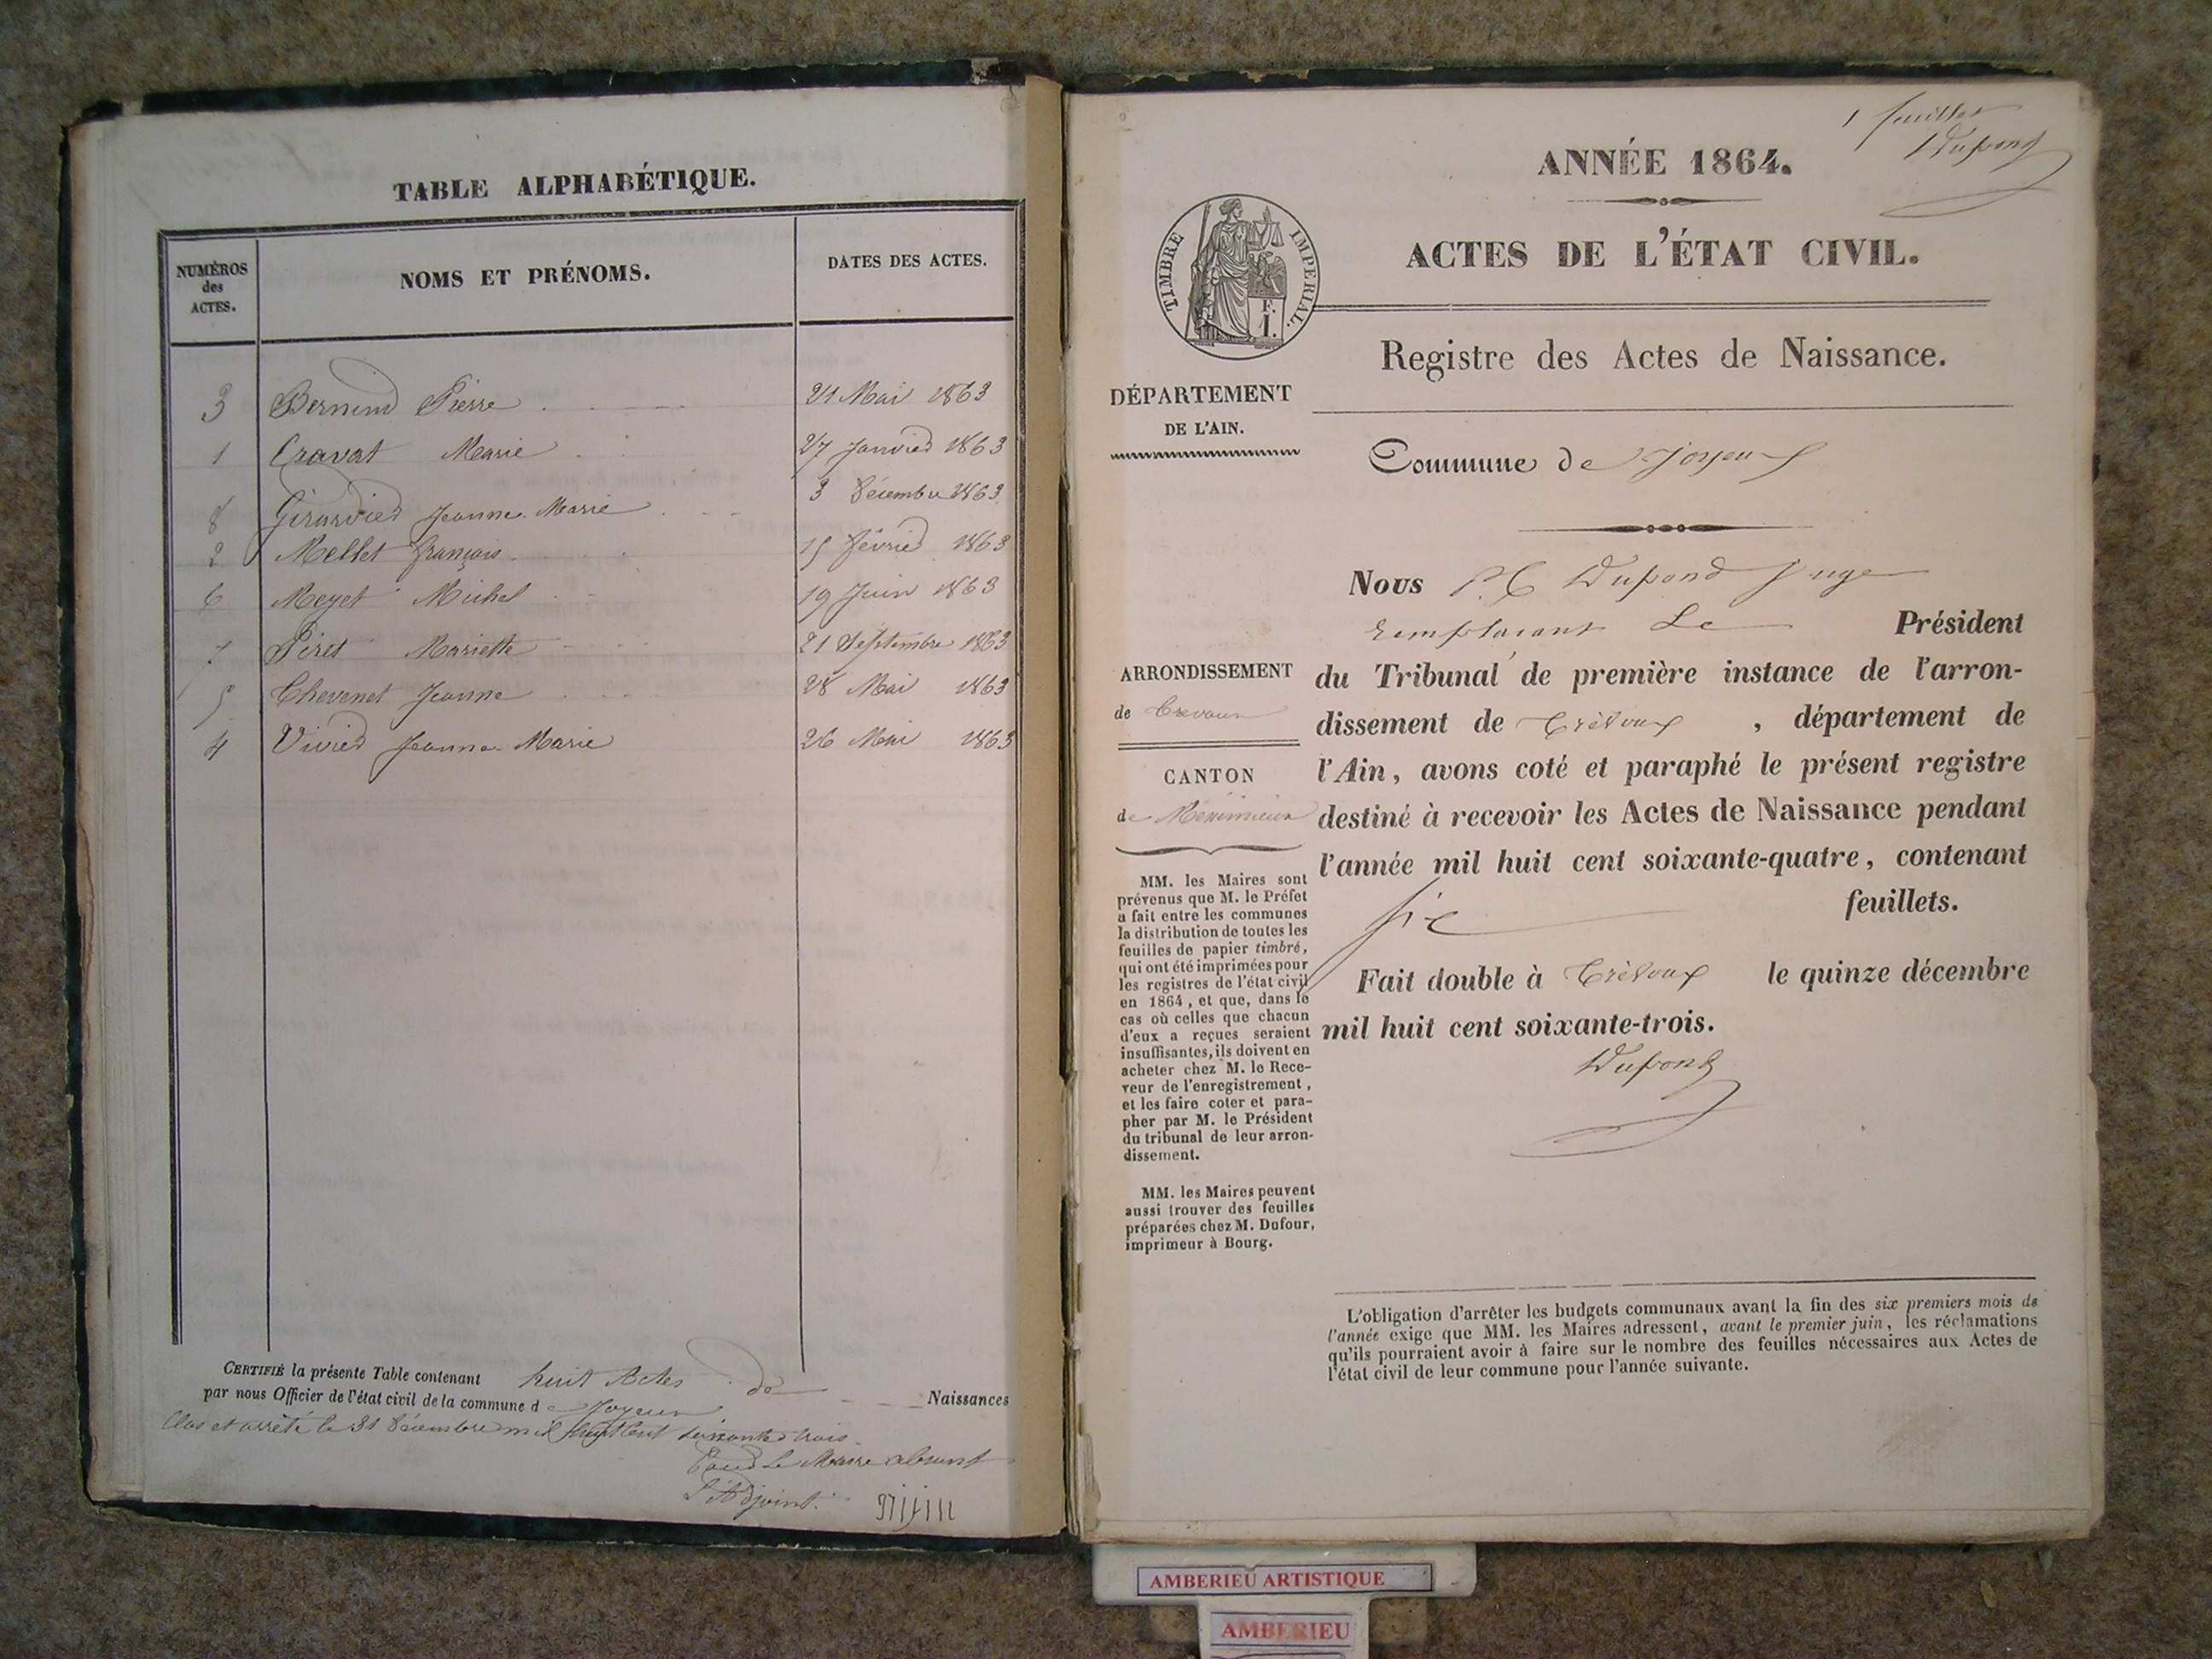 TABLE ALPHABÉTIQUE.
NUMÉROS des ACTES. NOMS ET PRÉNOMS. DATES DES ACTES.
3 Pierre 21 Mai 1863
1 Cravat Marie 27 Janvier 1863
8 Girardier Jeanne Marie 3 Décembre 1863
2 Mellet françois 15 février 1863
6 Meyet Michel 19 Juin 1863
7 Péret Mariette 21 Septembre 1863
5 Chevenet Jeanne 28 Mai 1863
4 Vivier Jeanne Marie 26 Mai 1863
CERTIFIÉ la présente Table contenant huit Actes de Naissances
par nous Officier de l'état civil de la commune de Joyeux
Clos et arrêté le 31 Décembre mil huit Cent soixante trois
Pour Le Maire absent
L'Adjoint.
1 feuillet
Dupond
ANNÉE 1864.
ACTES DE L'ÉTAT CIVIL.
TIMBRE IMPERIAL.
F.
1.
Registre des Actes de Naissance.
DÉPARTEMENT
DE L'AIN.
Commune de Joyeux
Nous P. C Dupond Juge
remplacant Le Président
ARRONDISSEMENT
de Trevoux
du Tribunal de première instance de l'arron-
dissement de Trévoux, département de
l'Ain, avons coté et paraphé le présent registre
destiné à recevoir les Actes de Naissance pendant
l'année mil huit cent soixante-quatre, contenant
six feuillets.
Fait double à Trévoux le quinze décembre
mil huit cent soixante-trois.
Dupond
CANTON
de Méximieux
MM. les Maires sont
prévenus que M. le Préfet
a fait entre les communes
la distribution de toutes les
feuilles de papier timbré,
qui ont été imprimées pour
les registres de l'état civil
en 1864, et que, dans le
cas où celles que chacun
d'eux a reçues seraient
insuffisantes, ils doivent en
acheter chez M. le Rece-
veur de l'enregistrement,
et les faire coter et para-
pher par M. le Président
du tribunal de leur arron-
dissement.
MM. les Maires peuvent
aussi trouver des feuilles
préparées chez M. Dufour,
imprimeur à Bourg.
L'obligation d'arrêter les budgets communaux avant la fin des six premiers mois de
l'année exige que MM. les Maires adressent, avant le premier juin, les réclamations
qu'ils pourraient avoir à faire sur le nombre des feuilles nécessaires aux Actes de
l'état civil de leur commune pour l'année suivante.
AMBERIEU ARTISTIQUE
AMBERIEU